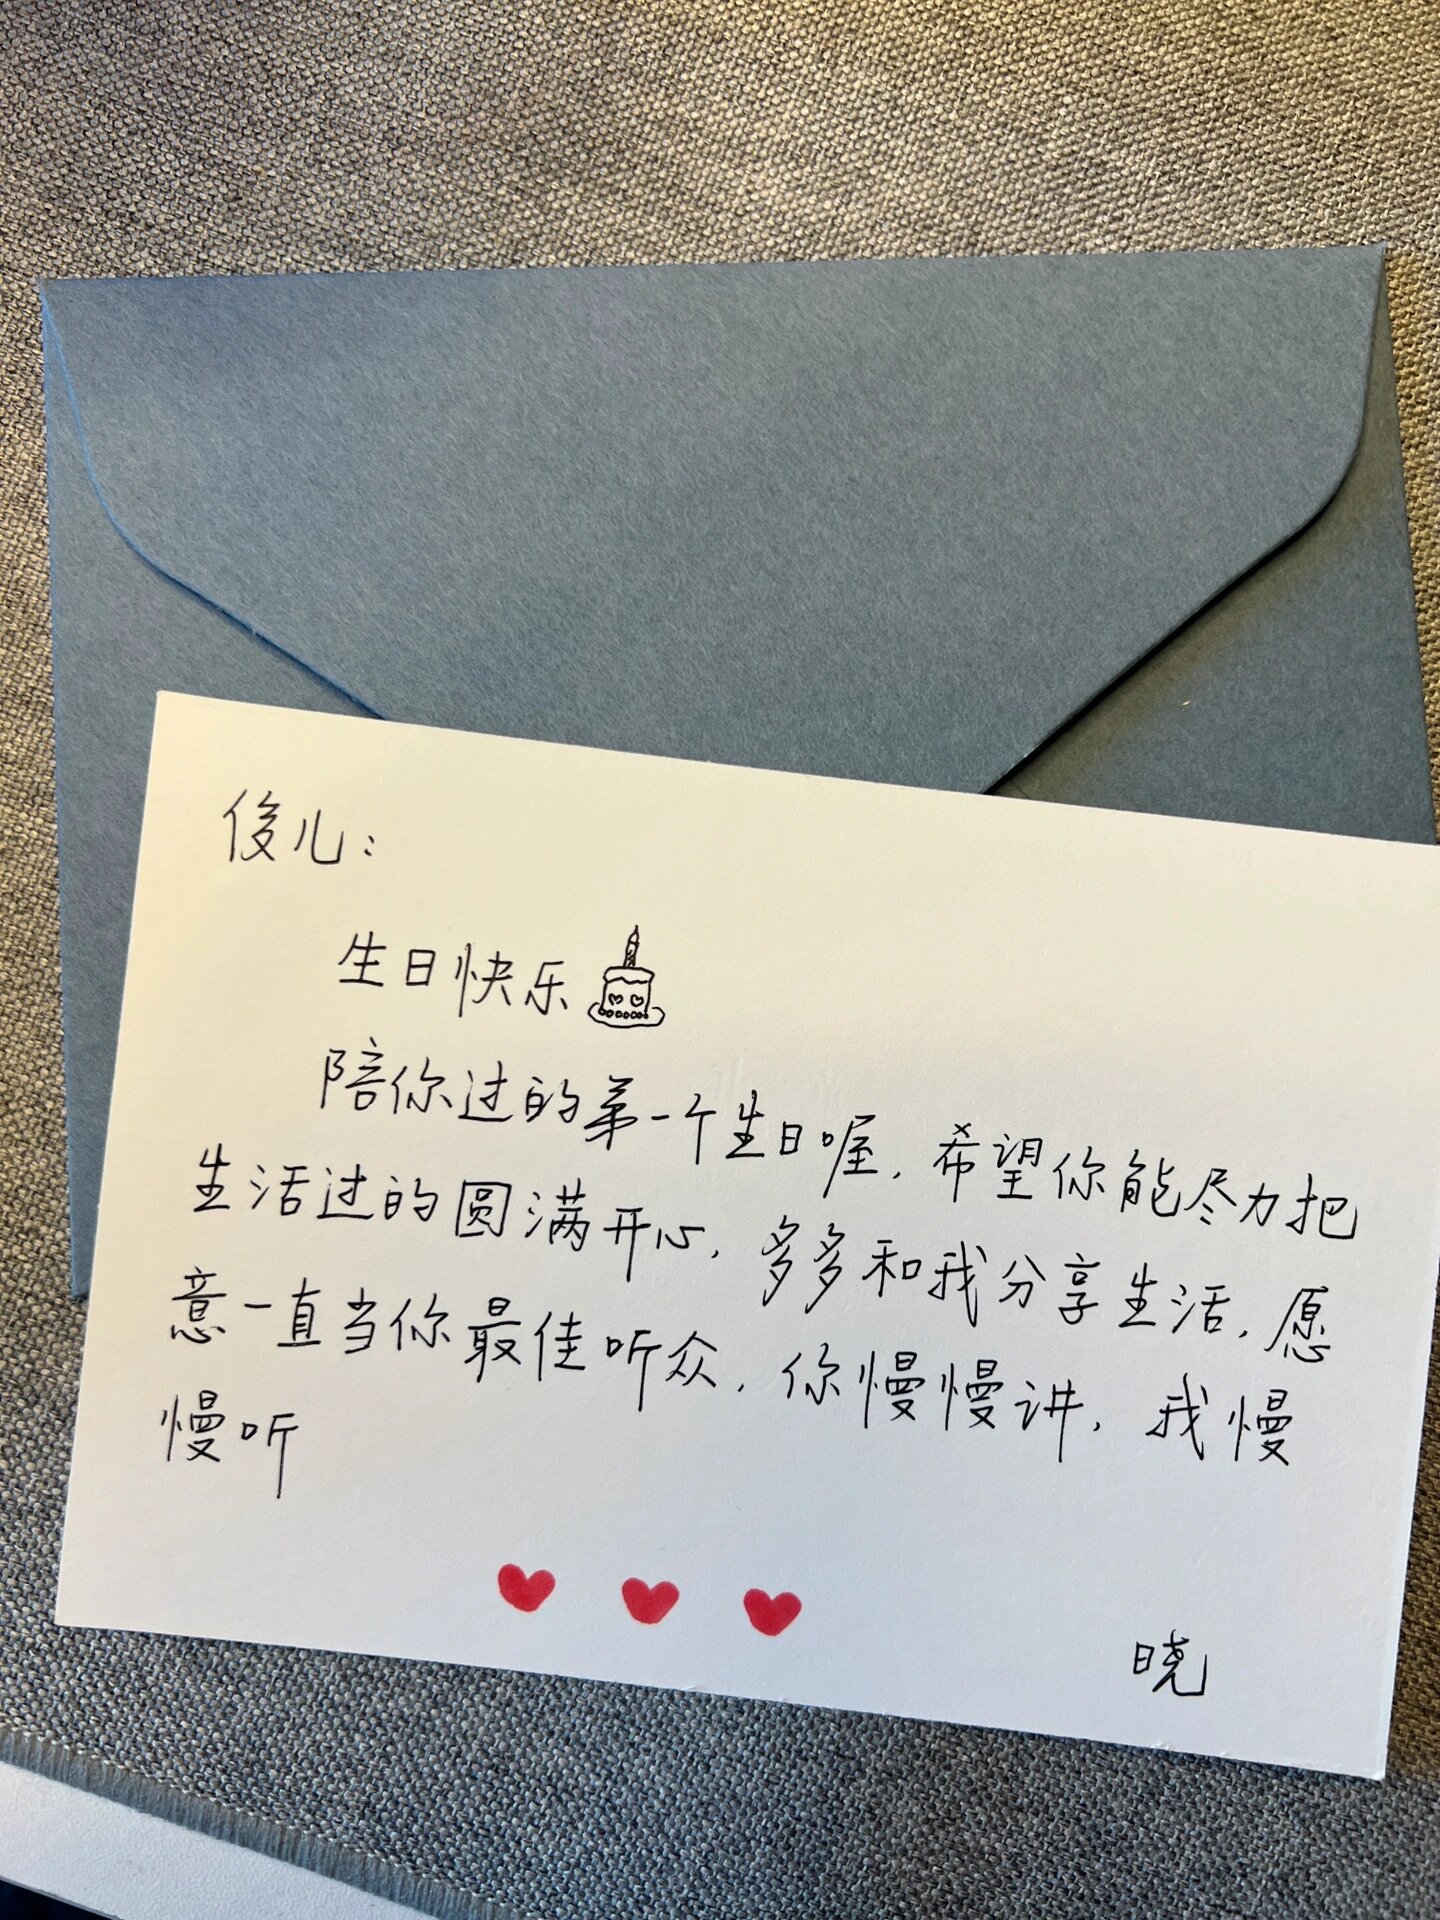 俊儿：
生日快乐
陪你过的第一个生日喔，希望你能尽力把
生活过的圆满开心，多多和我分享生活，愿
意一直当你最佳听众，你慢慢讲，我慢
慢听
晓